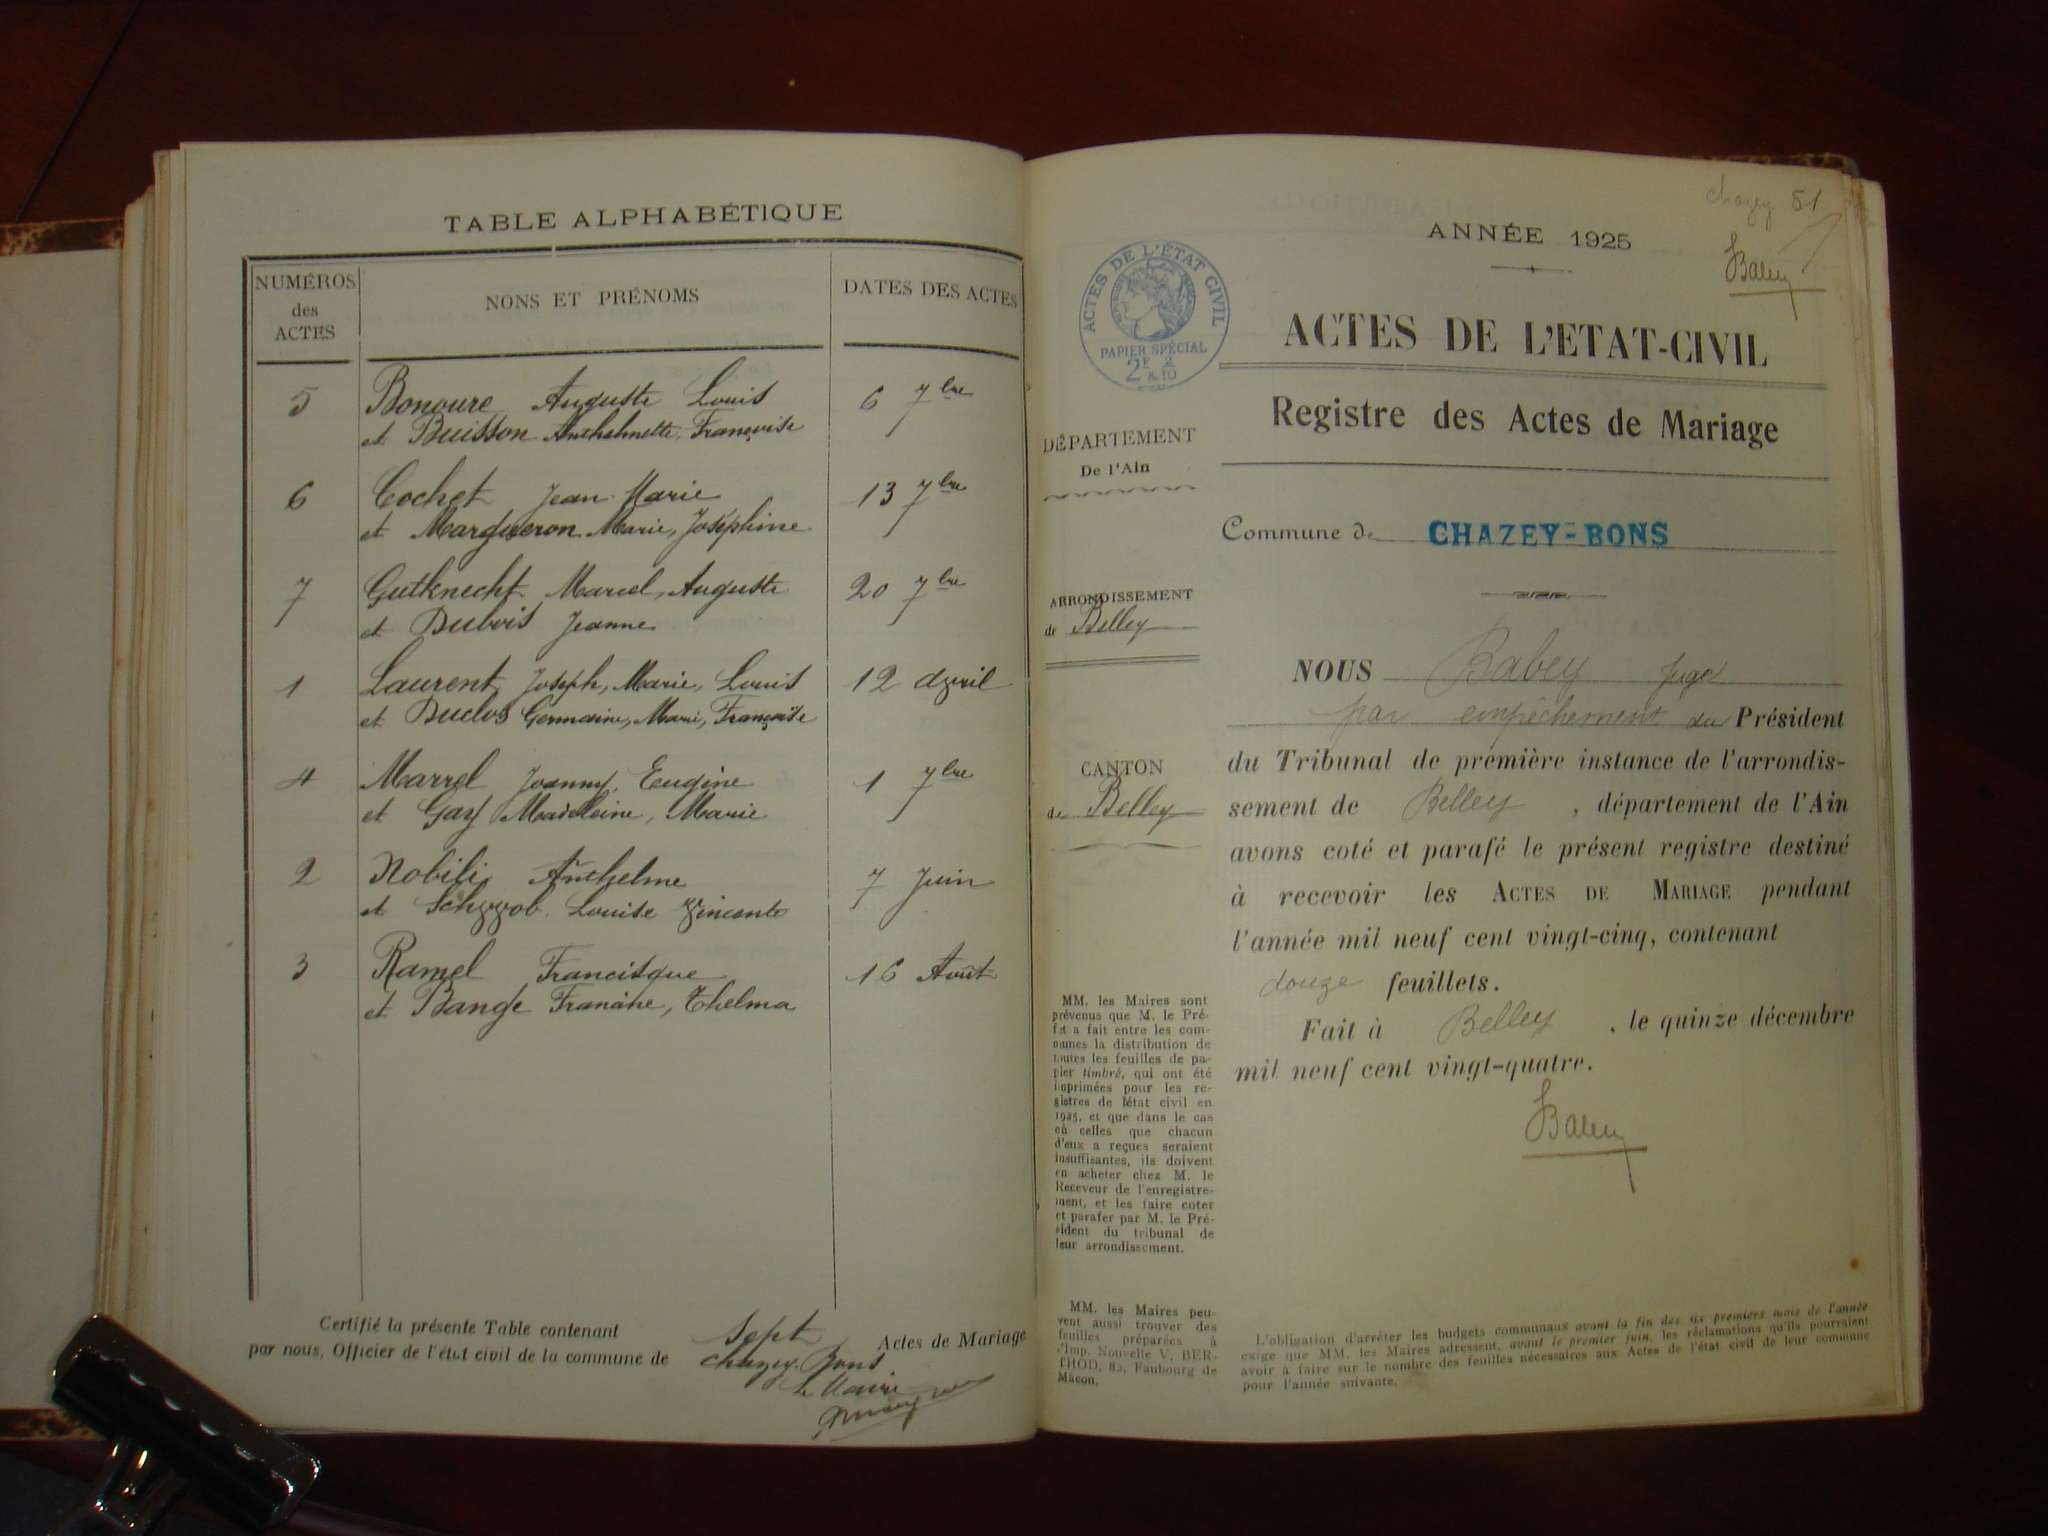 TABLE ALPHABÉTIQUE
NUMÉROS
des
ACTES
NONS ET PRÉNOMS
DATES DES ACTES
5 Bonoure Auguste Louis 6 7bre
et Buisson Anthelmette, Françoise
6 Cochet Jean Marie 13 7bre
et Margueron Marie, Joséphine
7 Gutknecht Marcel, Auguste 20 7bre
et Dubois Jeanne
1 Laurent, Joseph, Marie, Louis 12 avril
et Duclos Germaine, Marie, Françoise
4 Marrel Joanny, Eugène 1 7bre
et Gay Madeleine, Marie
2 Nobili Anthelme 7 Juin
et Louise
3 Ramel Francisque 16 Août
et Bange Francine, Thelma
Certifié la présente Table contenant Sept Actes de Mariage
par nous, Officier de l'état civil de la commune de Chazey-Bons
Le Maire
chazey 81
Babey
ANNÉE 1925
ACTES DE L'ÉTAT CIVIL
PAPIER SPÉCIAL
2F 2/10
ACTES DE L'ETAT-CIVIL
Registre des Actes de Mariage
DÉPARTEMENT
De l'Ain
Commune de CHAZEY-BONS
ARRONDISSEMENT
de Belley
CANTON
de Belley
NOUS Babey Juge
par empêchement du Président
du Tribunal de première instance de l'arrondis-
sement de Belley, département de l'Ain
avons coté et parafé le présent registre destiné
à recevoir les ACTES DE MARIAGE pendant
l'année mil neuf cent vingt-cinq, contenant
douze feuillets.
Fait à Belley, le quinze décembre
mil neuf cent vingt-quatre.
Babey
MM. les Maires sont
prévenus que M. le Pré-
fet a fait entre les com-
munes la distribution de
toutes les feuilles de pa-
pier timbré, qui ont été
imprimées pour les re-
gistres de l'état civil en
1925, et que dans le cas
où celles que chacun
d'eux a reçues seraient
insuffisantes, ils doivent
en acheter chez M. le
Receveur de l'enregistre-
ment, et les faire coter
et parafer par M. le Pré-
sident du tribunal de
leur arrondissement.
MM. les Maires peu-
vent aussi trouver des
feuilles préparées à
l'Imp. Nouvelle V. BER-
THOD, 82, Faubourg de
Mâcon.
L'obligation d'arrêter les budgets communaux avant la fin des six premiers mois de l'année
exige que MM. les Maires adressent, avant le premier juin, les réclamations qu'ils pourraient
avoir à faire sur le nombre des feuilles nécessaires aux Actes de l'état civil de leur commune
pour l'année suivante.